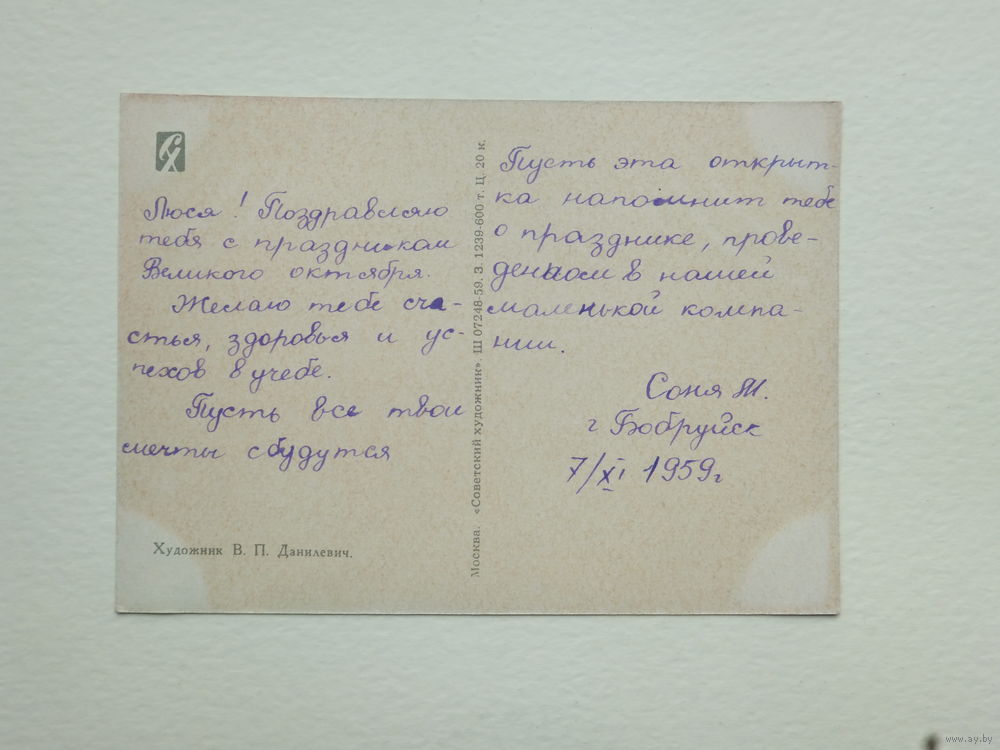 Люся! Поздравляю
тебя с праздником
Великого октября.
Желаю тебе сча-
стья, здоровья и ус-
пехов в учебе.
Пусть все твои
мечты сбудутся
Художник В. П. Данилевич.
Москва. «Советский художник». Ш 07248-59. З. 1239-600 т. Ц. 20 к.
Пусть эта открыт-
ка напомнит тебе
о празднике, прове-
денном в нашей
маленькой компа-
нии.
Соня М.
г Бобруйск
7/XI 1959г
www.ay.by